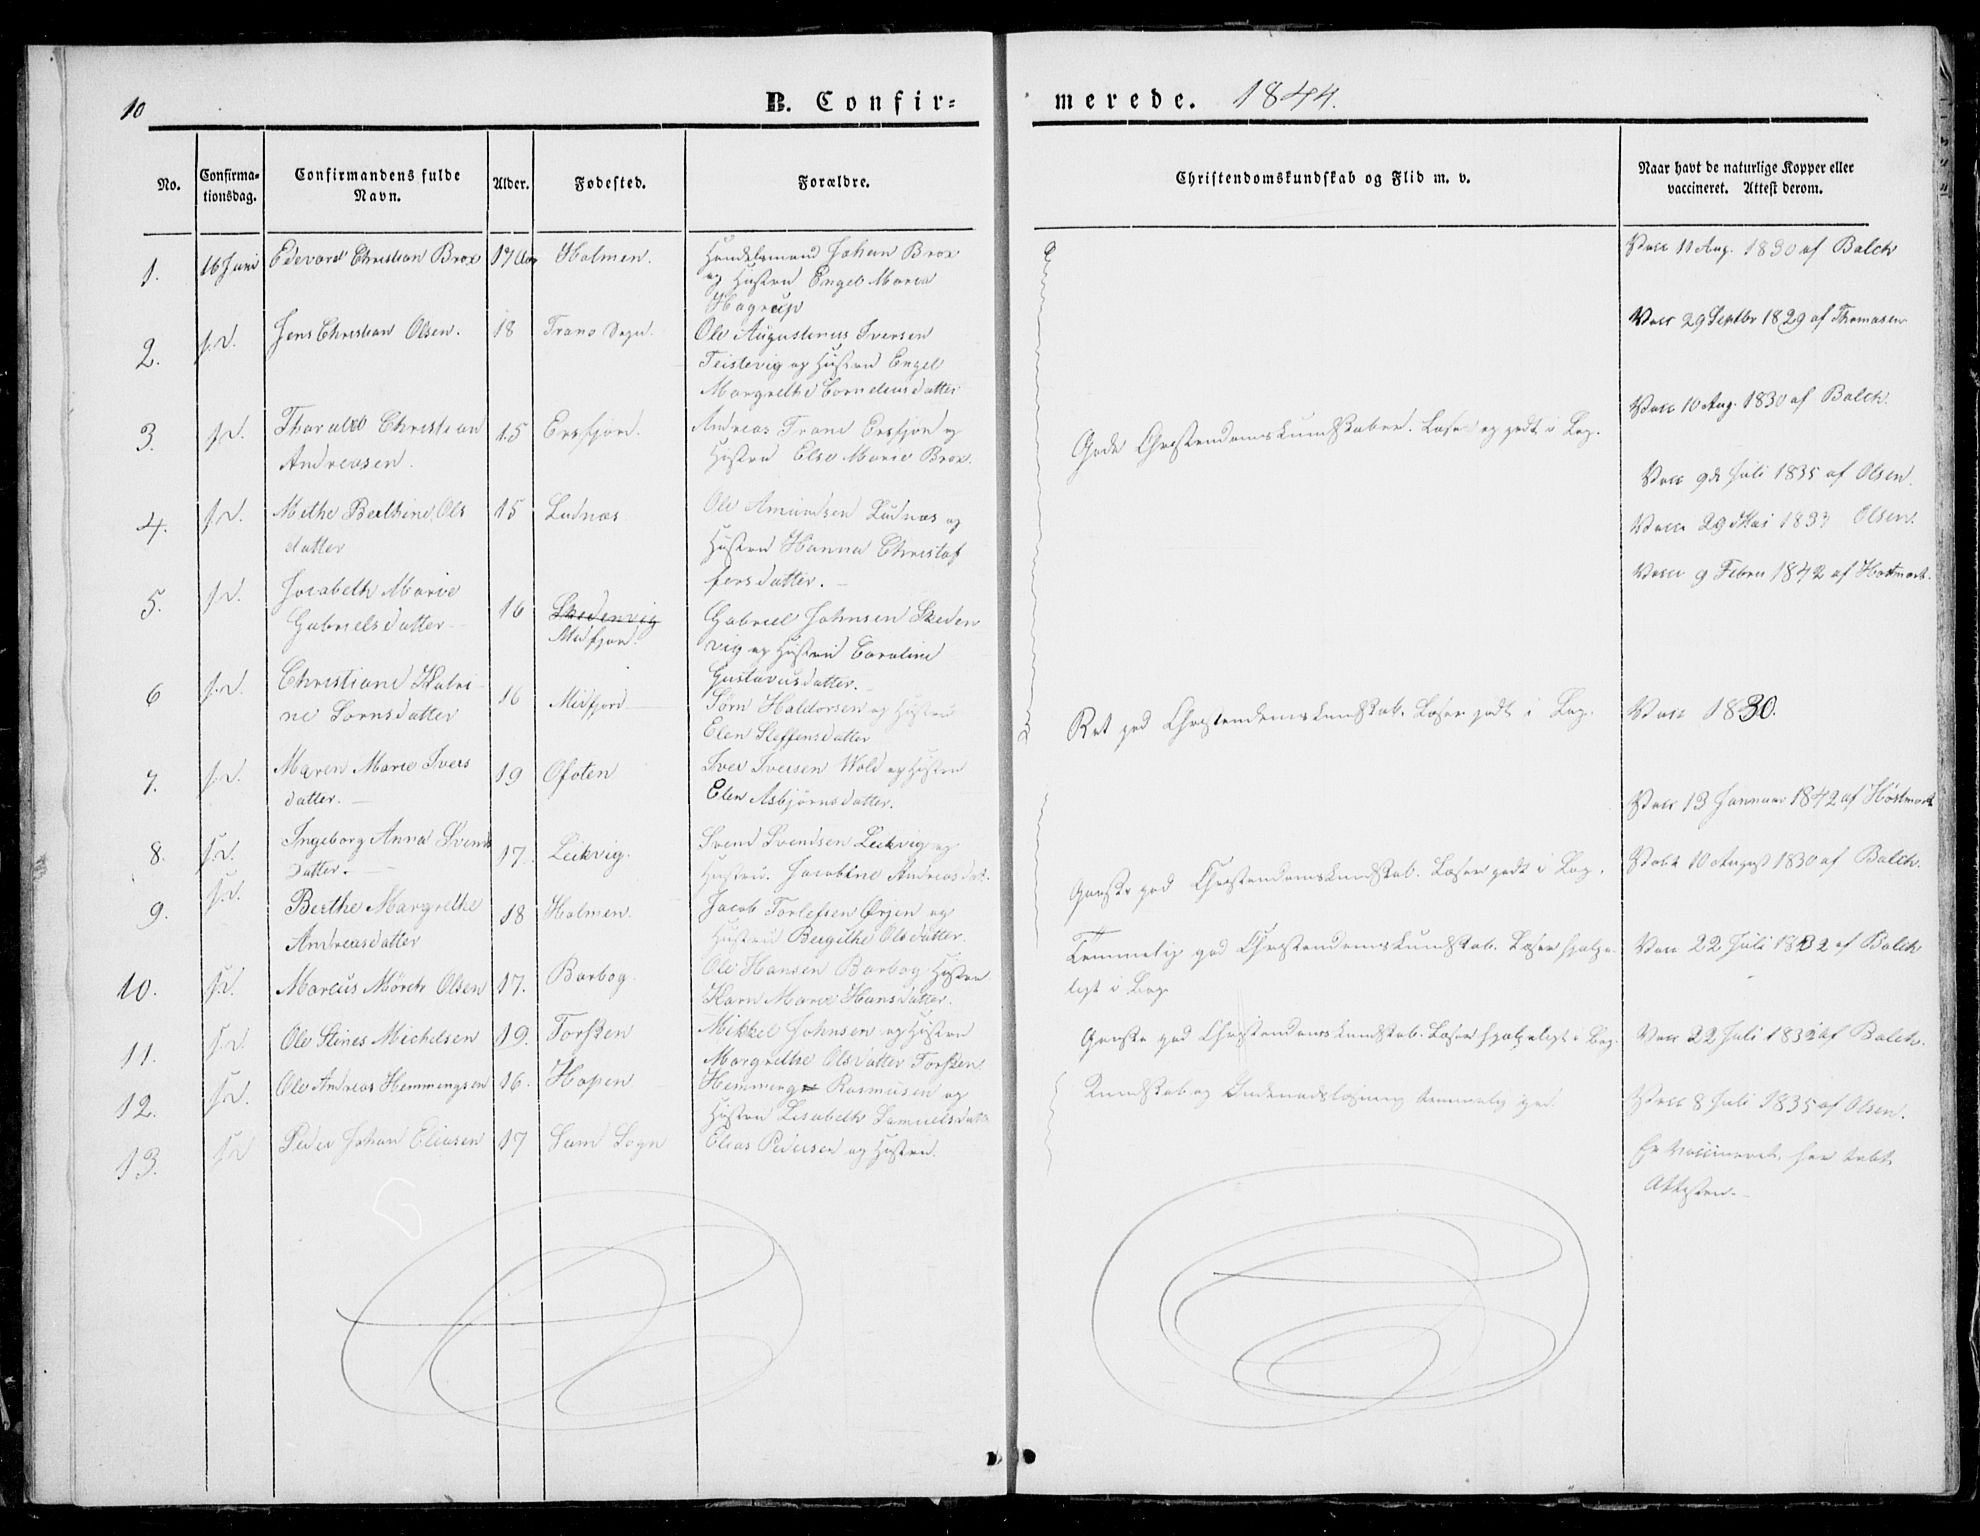 10
B. Confir=
merede. 1844.
No.
Confirma-
tionsdag.
Confirmandens fulde
Navn.
Alder.
Fødested.
Forældre.
Christendomskundskab og Flid m. v.
Naar havt de naturlige Kopper eller
vaccineret. Attest derom.
1. 16 Juni Edevard Christian Brox 17 Aar Holmen. Handelsmand Johan Brox
og Hustru Engel Maria
Hagrup
Vacc 11 Aug. 1830 af Balch
2. s.d. Jens Christian Olsen. 18 Trano Sogn. Ole Augustinus Iversen
Teistevig og Hustru Engel
Margrethe Corneliusdatter
Vacc 29 Septbr 1829 af Thomasen
3. s.d. Tharald Christian
Andreasen.
15 Ersfjord. Andreas Trane Ersfjord og
Hustru Else Marie Brox.
Gode Christendomskundskaber. Læser og godt i Bog.
Vacc 10 Aug. 1830 af Balch.
4. s.d. Methe Berthine Ols
datter
15 Ludnæs Ole Amundsen Ludnæs og
Hustru Hanna Christof
fersdatter.
Vacc 9de Juli 1835 af Olsen.
Vacc 29 Mai 1837 Olsen.
5. s.d. Jocobeth Marie
Gabrielsdatter
16 Skedenvig
Midfjord.
Gabriel Johnsen Skeden
vig og Hustru Caroline
Gustavusdatter.
Vacc 9 Febru 1842 af Høstmark.
6 s.d. Christiane Katri
ne Sørnsdatter
16 Midfjord Sørn Haldorsen og Hustru
Elen Steffensdatter
Ret god Christendomskundskab. Læser godt i Bog.
Vacc 1830.
7. s.d. Maren Marie Ivers
datter.
19 Ofoten Iver Iversen Wold og Hustru
Elen Asbjørnsdatter.
Vacc 13 Januar 1842 af Høstmark
8. s.d. Ingeborg Anna Svends
datter.
17. Leikvig. Svend Svendsen Leikvig og
Hustru. Jacobine Andreasdat.
Ganske god Christendomskundskab. Læser godt i Bog.
Vacc 10 August 1830 af Balch.
9. s.d. Berthe Margrethe
Andreasdatter
18 Holmen. Jacob Torlefsen Ørjen og
Hustru Bergithe Olsdatter.
Temmelig god Christendomskundskab. Læser hjelpe-
ligt i Bog
Vacc 22 Juli 1832 af Balch
10. s.d. Marcus Mörch Olsen 17. Barbog Ole Hansen Barbog Hustru
Karn Marie Hansdatter.
11. s.d. Ole Stines Michelsen 19. Torsken Mikkel Johnsen og Hustru
Margrethe Olsdatter Torsken
Ganske god Christendomskundskab. Læser hjelpeligt i Bog.
Vacc 22 Juli 1832 af Balch.
12. s.d. Ole Andreas Hemmingsen 16. Hopen Hemming Rasmusen og
Hustru Lisabeth Samuelsdat
Kundskab og Indenadslæsning temmelig god.
Vacc 8 Juli 1835 af Olsen.
13. s.d. Peder Johan Eliasen 17 Sam Sogn Elias Pedersen og Hustru.
Er vaccineret, har tabt
Attesten.